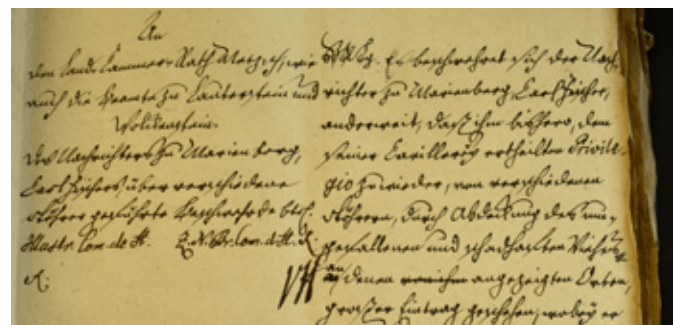 An
den Land Cammer-Rath Metzsch, wie
auch die Beamte zu Lauterstein und
Wolckenstein.
Des Nachrichters zu Marienberg,
Carl Fischers, über verschiedene
geführte Beschwehrde btrf.
Mustr. Com. de
P. P. Es beschwehret sich der Nach-
richter zu Marienberg, Carl Fischer,
anderweit, daß ihm bißhero, dem
seiner Cavillerey ertheilten Privile-
gio zuwieder, von verschiedenen
durch Abdeckung des um-
gefallenen und schadhafften Viehes
an denen angezeigten Orten,
großer Eintrag geschehen, wobey er